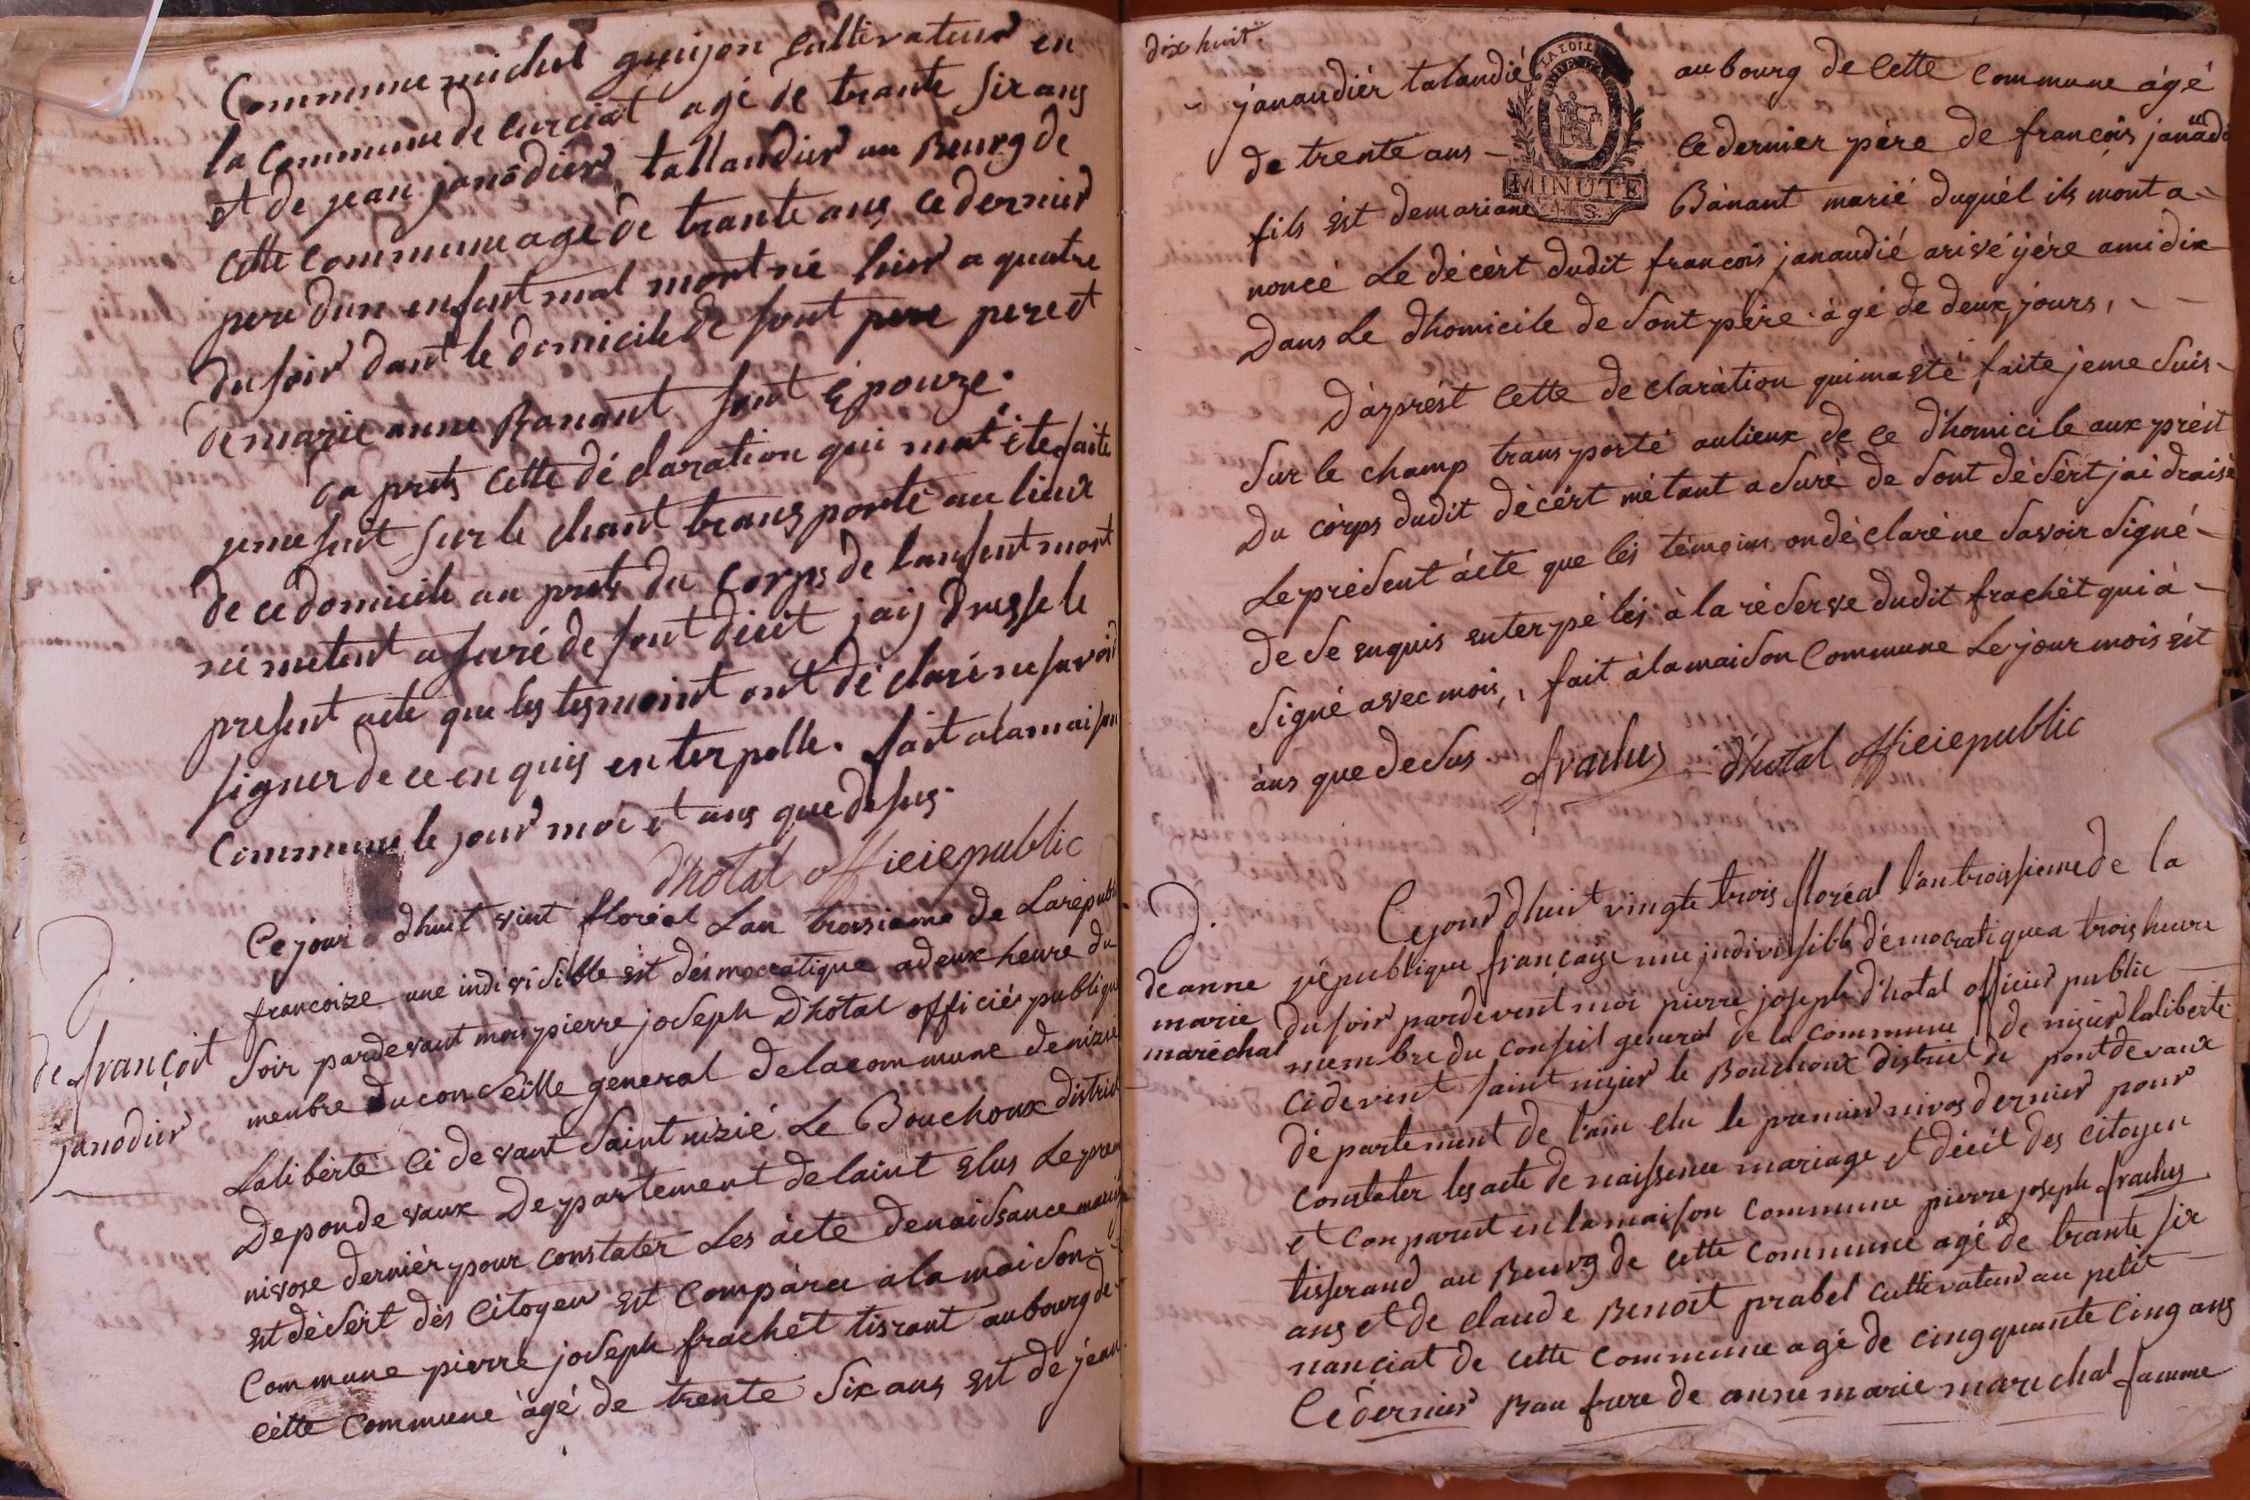 Commune michel guijon cultivateur en
la commune de curciat agé de trante six ans
et de jean janodier tallandier au Bourg de
cette commune agé de trante ans ce dernier
pere dun enfant mal mort né hier a quatre
du soir dant le domicile de sont pere peret
de marie anne Banant sont Epouze.
da prets cette dé claration qui mat ete faite
je me suit sur le chant trans porté au lieux
de ce domicile au prets du corps de lenfent mort
né metent asuré de sont décit jaij dresse le
present acte que les tesmoint ont dé claré ne savoir
signer de ce en quis en ter pelle. fait a la maison
Commune le jour moi et ans que desus.
d'hotal officie public
Ce jour d huit vint floréal Lan troisiame de Larépub
francoize une indivisible est désmocratique a deux heure du
Soir pardevant moi pierre joseph D'hotal officié publique
menbre du conseille general de la commune de nizié
Laliberté Ci devant Saint nizié Le Bouchoux district
De pondevaux De partement de laint Elus Le prem
nivose derniér pour constater Les àcte de naissance mari
est désért dés Citoyen est Compàru a la maison
Commune pierre joseph frachét tisrant au bourg de
cétte Commune àgé de trente Six ans est de jéan
D.
de françoit
janodier
dix huit.
janaudiér talandié au bourg de Cette commune àgé
de trente ans ce dernier pére de françois janaudi
fils est de mariane Bànant marié duquél ils mont a
noncé Le décért dudit françois janaudié arivé ijére a midix
Dans Le d'homicile de Sont pére àgé de deux jours,
D'àprést Cette de claràtion qui ma eté faite je me Suis
Sur le champ trans porté au lieux de ce d'homicile aux prést
Du còrps dudit décért métant a Suré de Sont désért jai draisé
Le présent àcte que lés témoins on déclaré ne Savoir Signé
de de enquis enter pé lés à la réserve dudit frachét qui à
Signé avec mois, fait à la maison Commune Le jour mois ést
àns que dedus frachey d'hotal officie public
D.
de anne
marie
maréchal
Ce jour d'huit vingte trois floréal l'an troissieme de la
république française une jndivisible démocratique a trois heure
du soir pardevent moi pierre joseph d'hotal officier public
membre du conseil general de la commune de nizier laliberté
cidevent saint nizier le Bouchoux district de pontdevaux
département de l'ain elu le premier nivos dernier pour
constater les acte de naissence mariage et décét des citoyen
et conparut en la maison commune pierre joseph frachey
tisserand au Bourg de cette commune agé de trante six
ans et de claude Benoit prabel cultivateur au petit
nanciat de cette commune agé de cingquante cinq ans
Ce dernier Bau frere de anne marie marechal famme